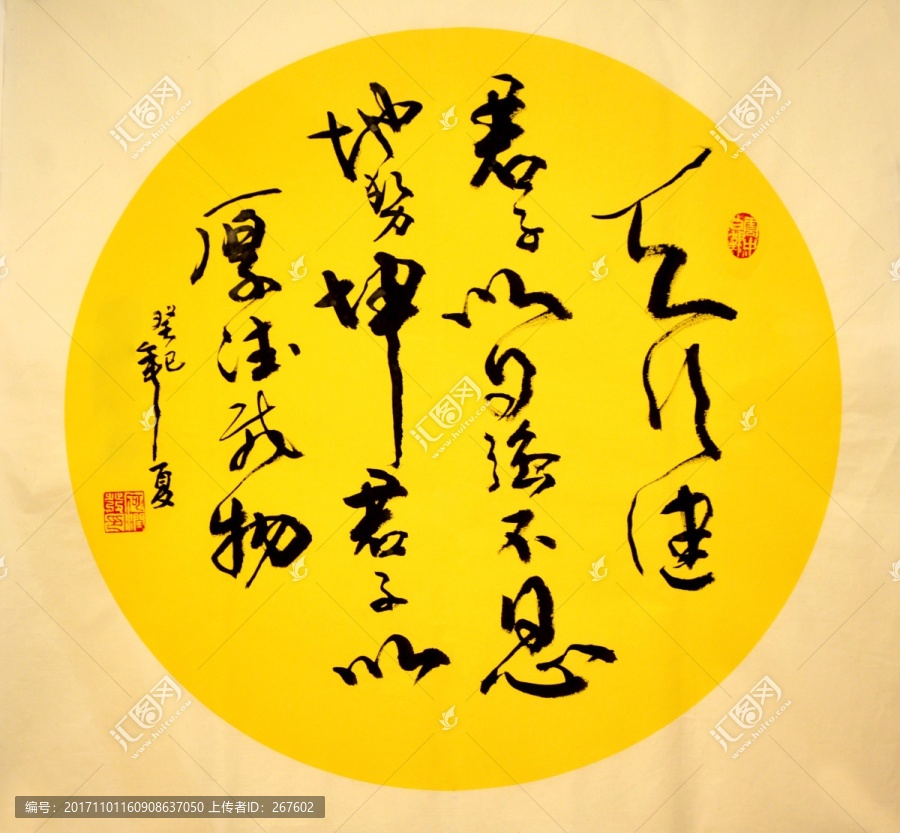 天行健
君子以自强不息
地势坤君子以
厚德载物
癸巳年夏
汇图网
www.huitu.com
编号：20171101160908637050 上传者ID：267602